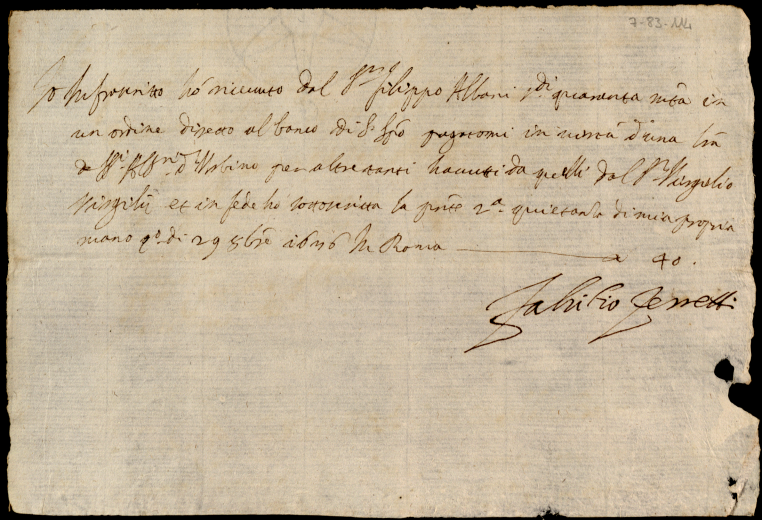 7-83-114
Io Infrascritto ho riceuuto dal Sr. filippo Albani sdi. quaranta mta in
un ordine diretto al banco di S. Spto pagatomi in uirtù d'una lra
de SSri. d'Urbino per altretanti hauuti da quelli dal Sr. Virgilio
Virgilii et in fede ho sottoscritta la prnte 2a. quietanza di mia propria
mano qo. di 29 8bre 1646 In Roma 40.
Fabritio Ferretti